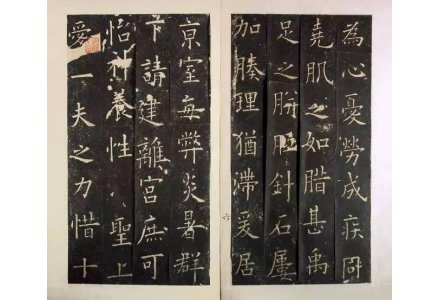 為心憂勞成疾同
堯肌之如腊甚禹
足之胼胝針石屢
加腠理猶滯爰居
六
京室每弊炎暑群
下請建離宮庶可
怡神養性聖上
愛一夫之力惜十